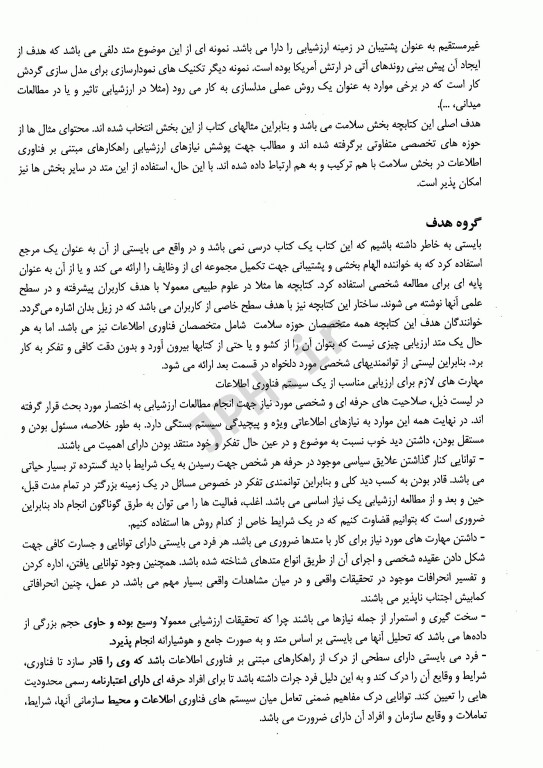 غیرمستقیم به عنوان پشتیبان در زمینه ارزشیابی را دارا می باشد. نمونه ای از این موضوع متد دلفی می باشد که هدف از
ایجاد آن پیش بینی روندهای آتی در ارتش آمریکا بوده است. نمونه دیگر تکنیک های نمودارسازی برای مدل سازی گردش
کار است که در برخی موارد به عنوان یک روش عملی مدلسازی به کار می رود (مثلا در ارزشیابی تاثیر و یا در مطالعات
میدانی، ...).
هدف اصلی این کتابچه بخش سلامت می باشد و بنابراین مثالهای کتاب از این بخش انتخاب شده اند. محتوای مثال ها از
حوزه های تخصصی متفاوتی برگرفته شده اند و مطالب جهت پوشش نیازهای ارزشیابی راهکارهای مبتنی بر فناوری
اطلاعات در بخش سلامت با هم ترکیب و به هم ارتباط داده شده اند. با این حال، استفاده از این متد در سایر بخش ها نیز
امکان پذیر است.
گروه هدف
بایستی به خاطر داشته باشیم که این کتاب یک کتاب درسی نمی باشد و در واقع می بایستی از آن به عنوان یک مرجع
استفاده کرد که به خواننده الهام بخشی و پشتیبانی جهت تکمیل مجموعه ای از وظایف را ارائه می کند و یا از آن به عنوان
پایه ای برای مطالعه شخصی استفاده کرد. کتابچه ها مثلا در علوم طبیعی معمولا با هدف کاربران پیشرفته و در سطح
علمی آنها نوشته می شوند. ساختار این کتابچه نیز با هدف سطح خاصی از کاربران می باشد که در زیل بدان اشاره می‌گردد.
خوانندگان هدف این کتابچه همه متخصصان حوزه سلامت شامل متخصصان فناوری اطلاعات نیز می باشد. اما به هر
حال یک متد ارزیابی چیزی نیست که بتوان آن را از کشو و یا حتی از کتابها بیرون آورد و بدون دقت کافی و تفکر به کار
برد. بنابراین لیستی از توانمندیهای شخصی مورد دلخواه در قسمت بعد ارائه می شود.
مهارت های لازم برای ارزیابی مناسب از یک سیستم فناوری اطلاعات
در لیست ذیل، صلاحیت های حرفه ای و شخصی مورد نیاز جهت انجام مطالعات ارزشیابی به اختصار مورد بحث قرار گرفته
اند. در نهایت همه این موارد به نیازهای اطلاعاتی ویژه و پیچیدگی سیستم بستگی دارد. به طور خلاصه، مسئول بودن و
مستقل بودن، داشتن دید خوب نسبت به موضوع و در عین حال تفکر و خود منتقد بودن دارای اهمیت می باشند.
- توانایی کنار گذاشتن علایق سیاسی موجود در حرفه هر شخص جهت رسیدن به یک شرایط با دید گسترده تر بسیار حیاتی
می باشد. قادر بودن به کسب دید کلی و بنابراین توانمندی تفکر در خصوص مسائل در یک زمینه بزرگتر در تمام مدت قبل،
حین و بعد و از مطالعه ارزشیابی یک نیاز اساسی می باشد. اغلب، فعالیت ها را می توان به طرق گوناگون انجام داد بنابراین
ضروری است که بتوانیم قضاوت کنیم که در یک شرایط خاص از کدام روش ها استفاده کنیم.
- داشتن مهارت های مورد نیاز برای کار با متدها ضروری می باشد. هر فرد می بایستی دارای توانایی و جسارت کافی جهت
شکل دادن عقیده شخصی و اجرای آن از طریق انواع متدهای شناخته شده باشد. همچنین وجود توانایی یافتن، اداره کردن
و تفسیر انحرافات موجود در تحقیقات واقعی و در میان مشاهدات واقعی بسیار مهم می باشد. در عمل، چنین انحرافاتی
کمابیش اجتناب ناپذیر می باشند.
- سخت گیری و استمرار از جمله نیازها می باشند چرا که تحقیقات ارزشیابی معمولا وسیع بوده و حاوی حجم بزرگی از
داده‌ها می باشد که تحلیل آنها می بایستی بر اساس متد و به صورت جامع و هوشیارانه انجام پذیرد.
- فرد می بایستی دارای سطحی از درک از راهکارهای مبتنی بر فناوری اطلاعات باشد که وی را قادر سازد تا فناوری،
شرایط و وقایع آن را درک کند و به این دلیل فرد جرات داشته باشد تا برای افراد حرفه ای دارای اعتبارنامه رسمی محدودیت
هایی را تعیین کند. توانایی درک مفاهیم ضمنی تعامل میان سیستم های فناوری اطلاعات و محیط سازمانی آنها، شرایط،
تعاملات و وقایع سازمان و افراد آن دارای ضرورت می باشد.